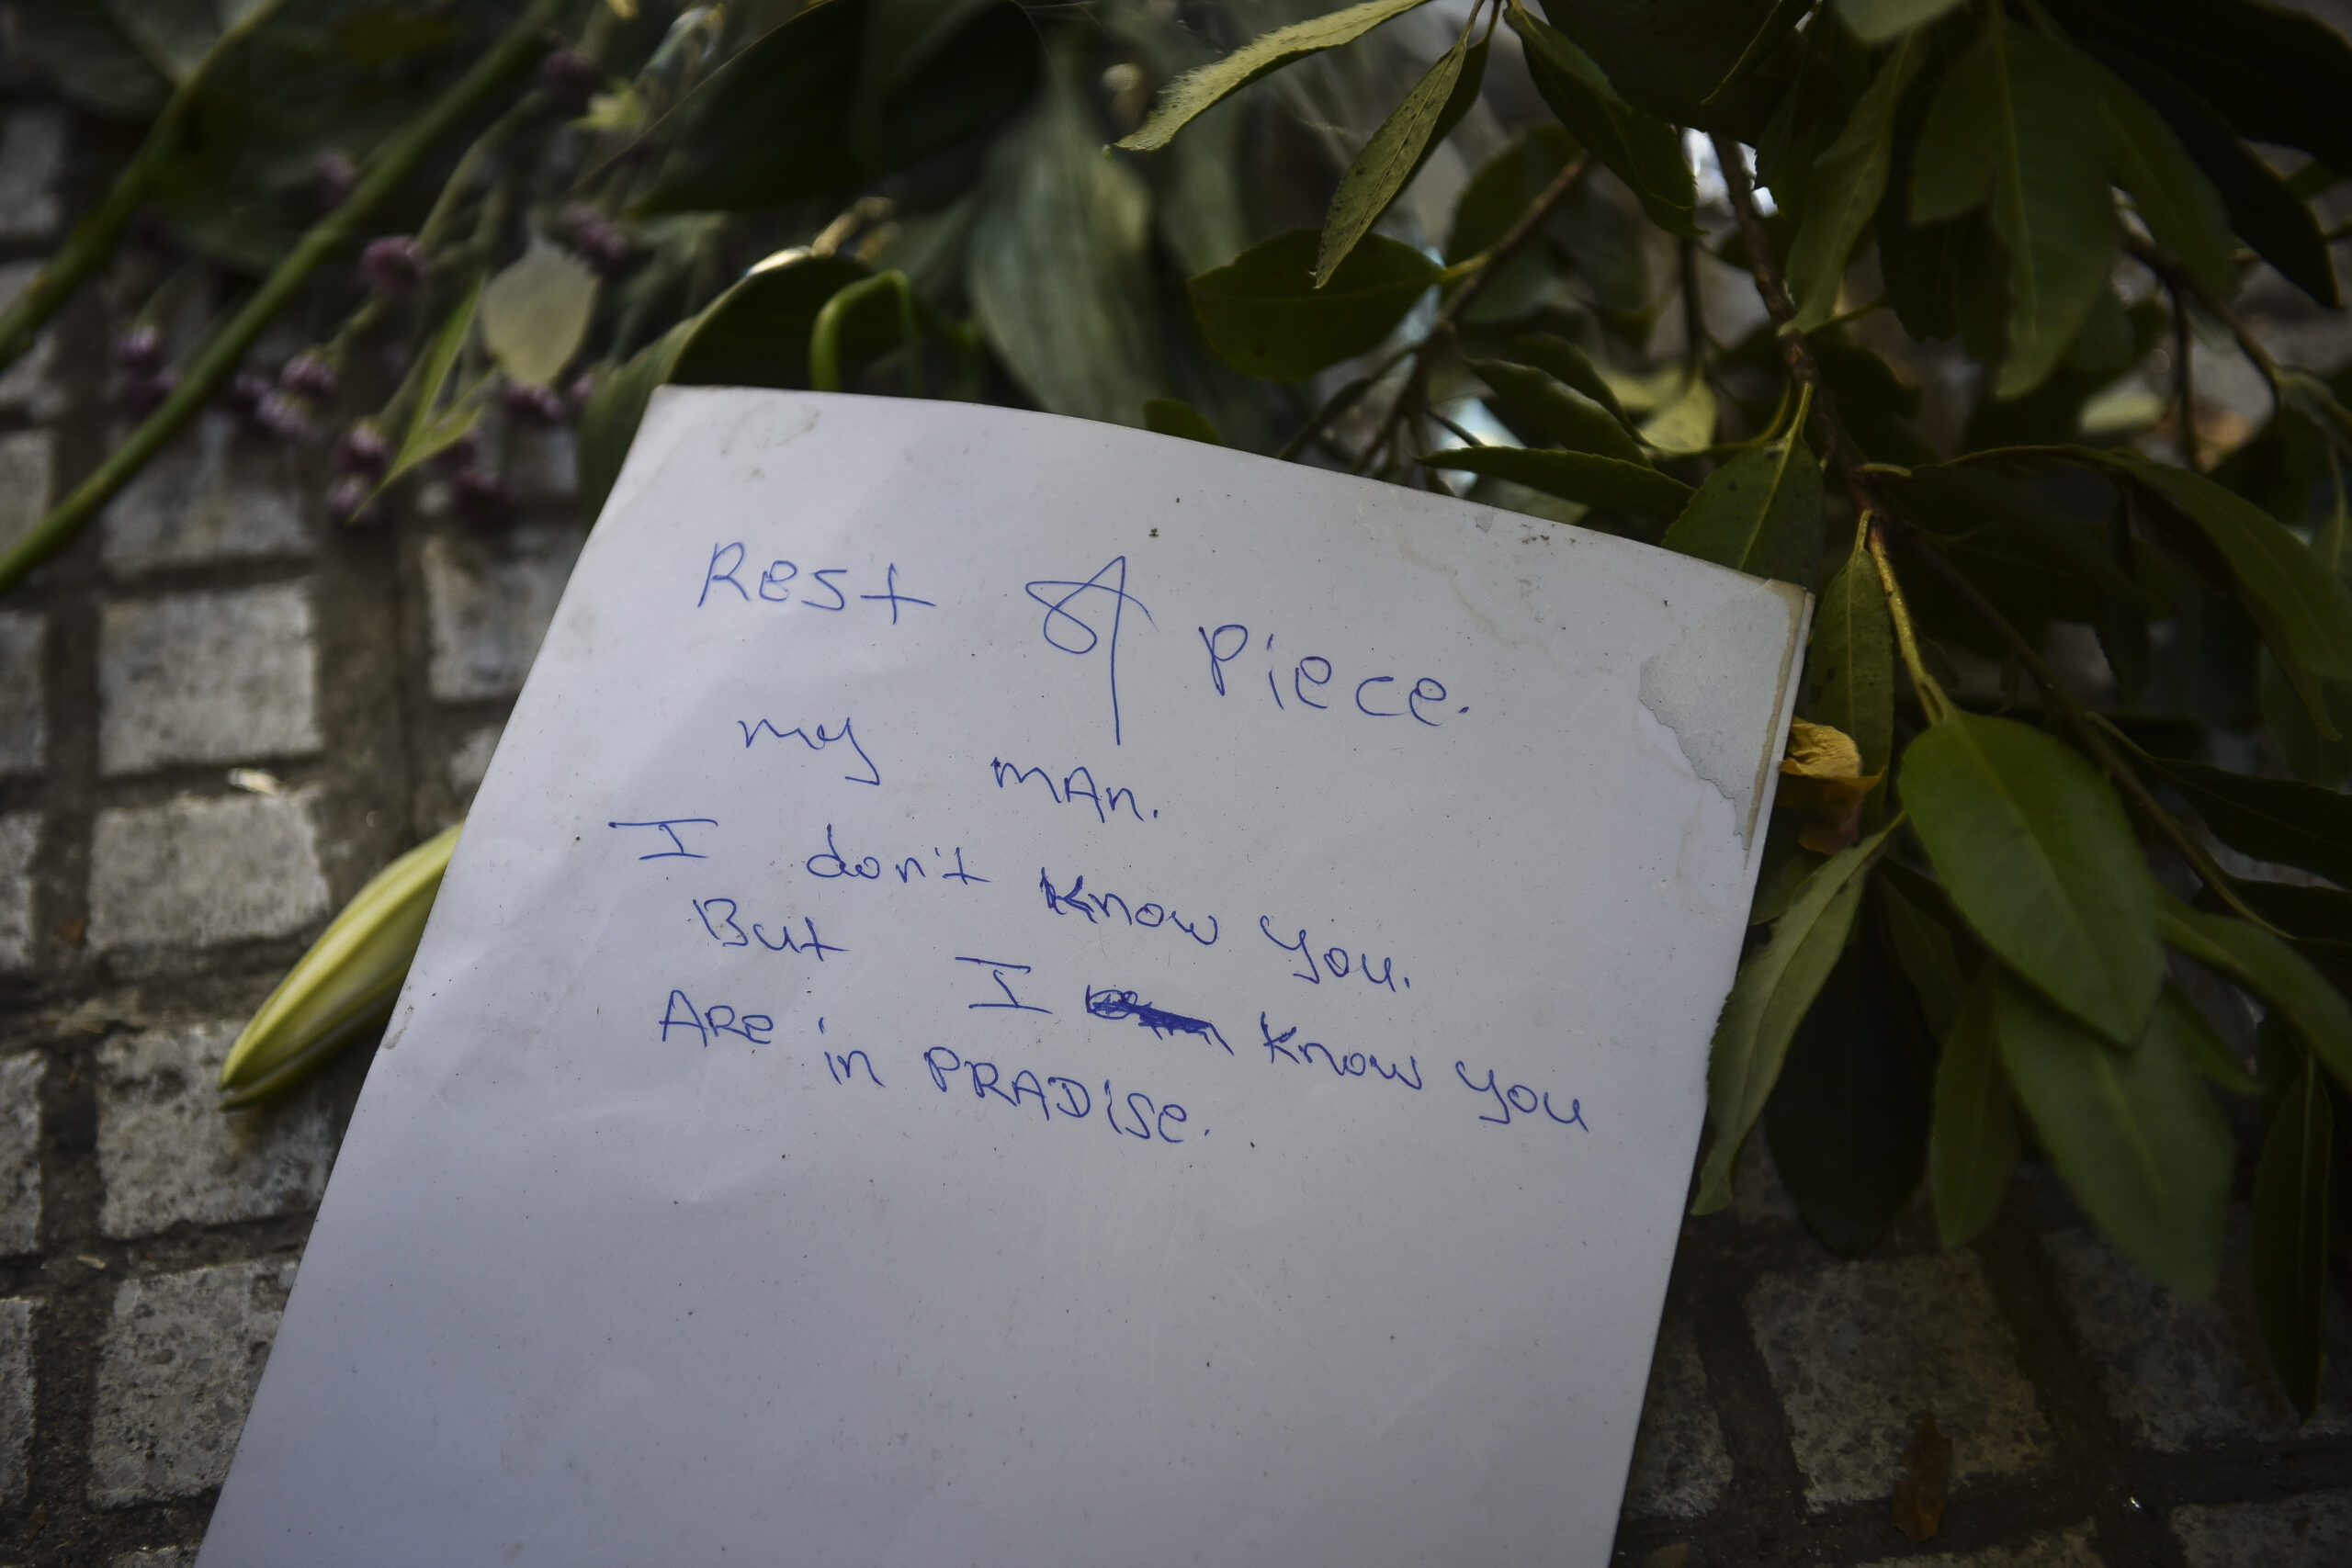 Rest & Piece.
my mAn.
I don't know you.
But I know you
ARe in PRADise.